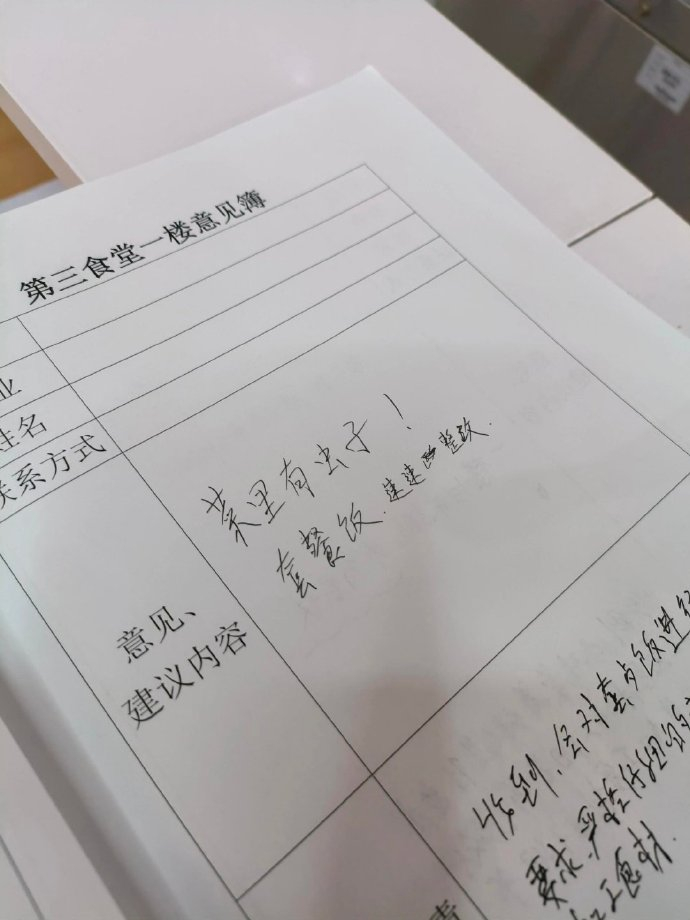 第三食堂一楼意见簿
业
姓名
联系方式
意见、
建议内容
菜里有虫子！
套餐饭. 速速整改.
收到,会对套餐饭进行
要求,严控
加工食材.